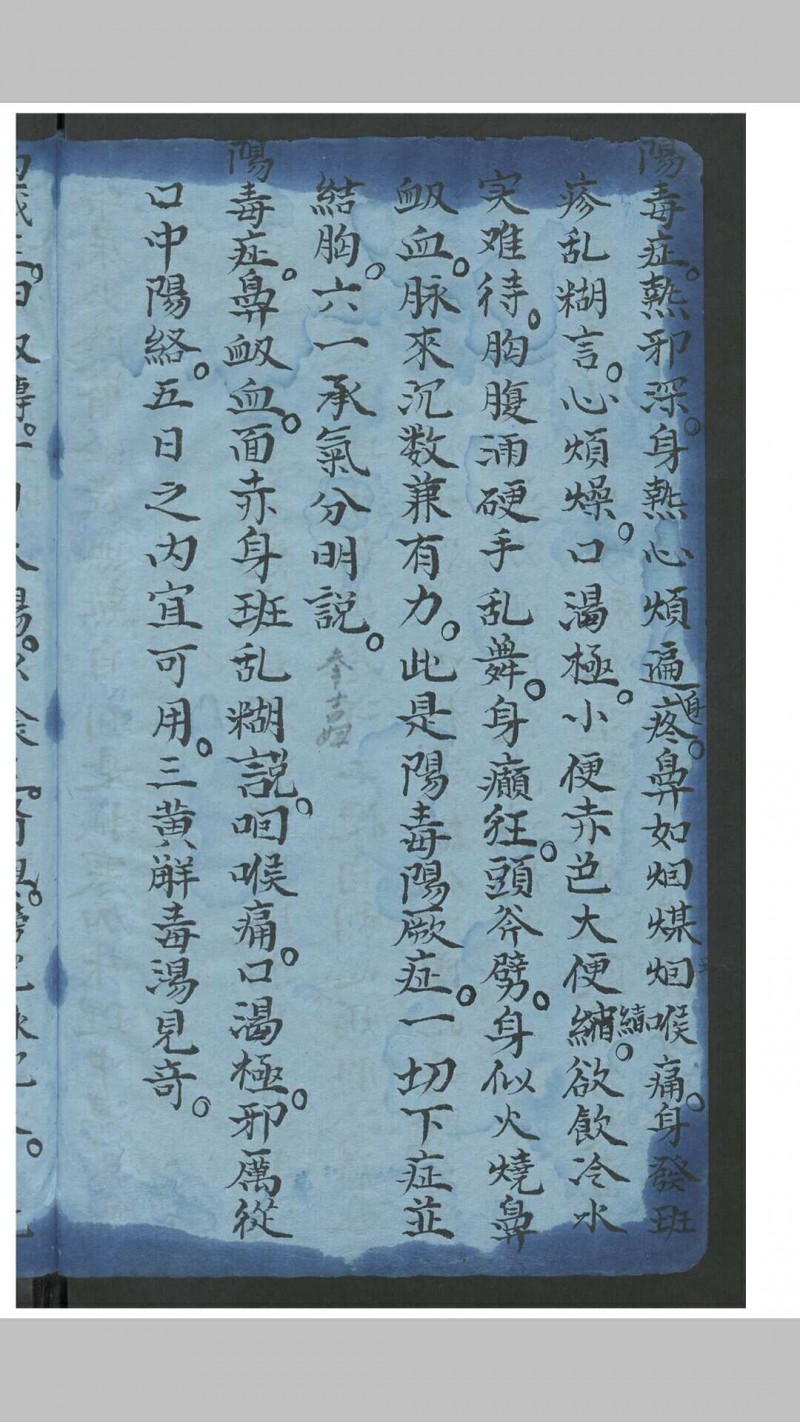 陽毒症。熱邪深。身熱心煩遍身疼。鼻如烟煤烟喉痛。身發班
疹乱糊言。心煩燥。口渴極。小便赤色大便縮結。欲飲冷水
实难待。胸腹涌硬手乱舞。身癲狂。頭斧劈。身似火燒鼻
衂血。脉來沉数兼有力。此是陽毒陽厥症。一切下症並
結胸。六一承氣分明説。
陽毒症。鼻衂血。面赤身班乱糊説。咽喉痛。口渴極。邪厲從
口中陽絡。五日之内宜可用。三黄解毒湯見奇。